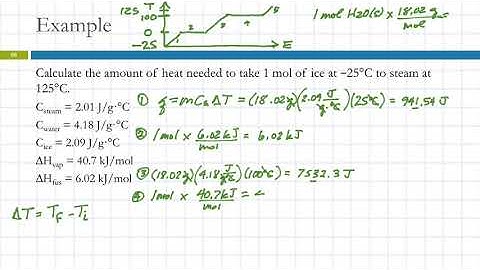 Example
125 T
100
0
-25
1
2
3
4
5
E
1 mol H2O(s) × 18.02 g
mol
Calculate the amount of heat needed to take 1 mol of ice at −25°C to steam at
125°C.
C steam = 2.01 J/g·°C
C water = 4.18 J/g·°C
C ice = 2.09 J/g·°C
ΔH vap = 40.7 kJ/mol
ΔH fus = 6.02 kJ/mol
ΔT = Tf - Ti
① q = mCsΔT = (18.02g)(2.09 J/g·°C)(25°C) = 941.54 J
② 1mol × 6.02 kJ/mol = 6.02 kJ
③ (18.02g)(4.18 J/g°C)(100°C) = 7532.3 J
④ 1mol × 40.7kJ/mol =